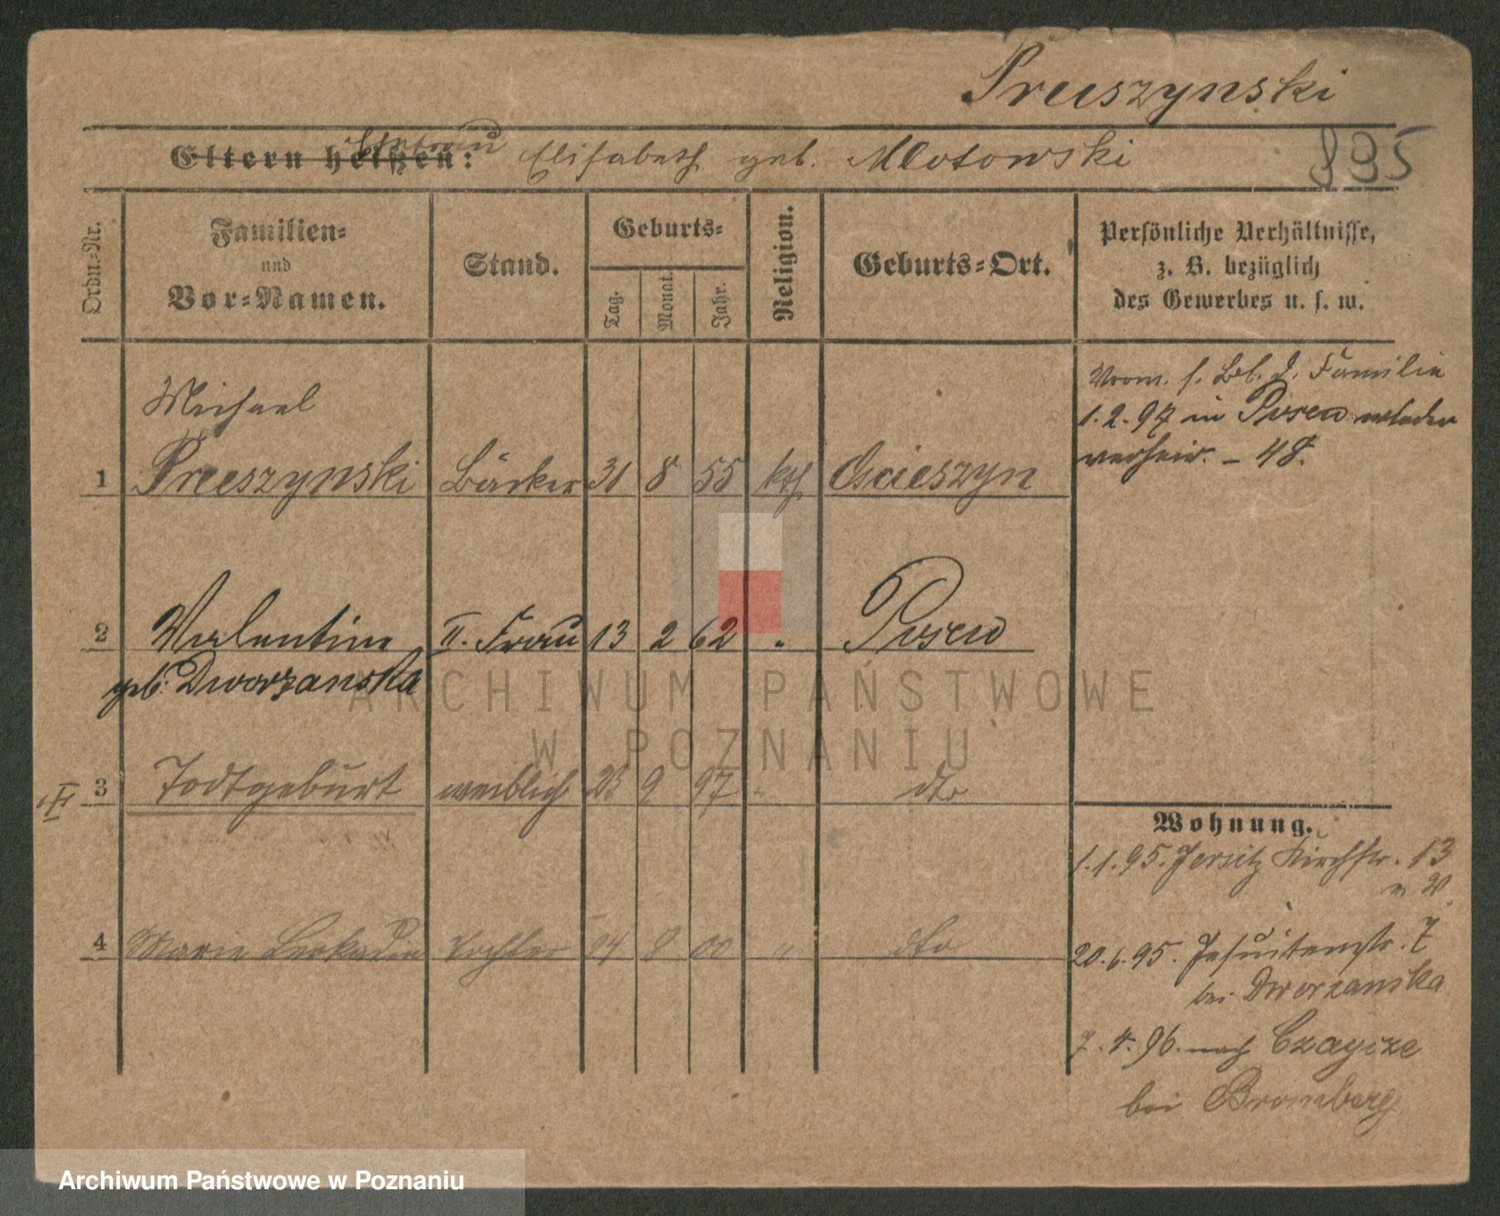 Pruszynski
Eltern heißen: Ehefrau Elisabeth geb. Mlotowski
895
Ordn.-Nr.
Familien-
und
Vor-Namen.
Stand.
Geburts-
Tag.
Monat.
Jahr.
Religion.
Geburts-Ort.
Persönliche Verhältnisse,
z. B. bezüglich
des Gewerbes u. s. w.
Michael
1 Pruszynski Bäcker 31 8 55 kth Oscieszyn
Familie
1.2.97 in Posen wieder
verheir. – 48.
2 Valentine II. Frau 13 2 62 " Posen
geb. Dworzanska
3 Todtgeburt weiblich 23 9 97 " dto
4 Marie Leokadia Tochter 24 8 00 " dto
Wohnung.
1.1.95. Jersitz Kirchstr. 13
20.6.95. Jesuitenstr. 7
bei Dworzanska
7.4.96. nach Czaycze
bei Bromberg
ARCHIWUM PAŃSTWOWE
W POZNANIU
Archiwum Państwowe w Poznaniu